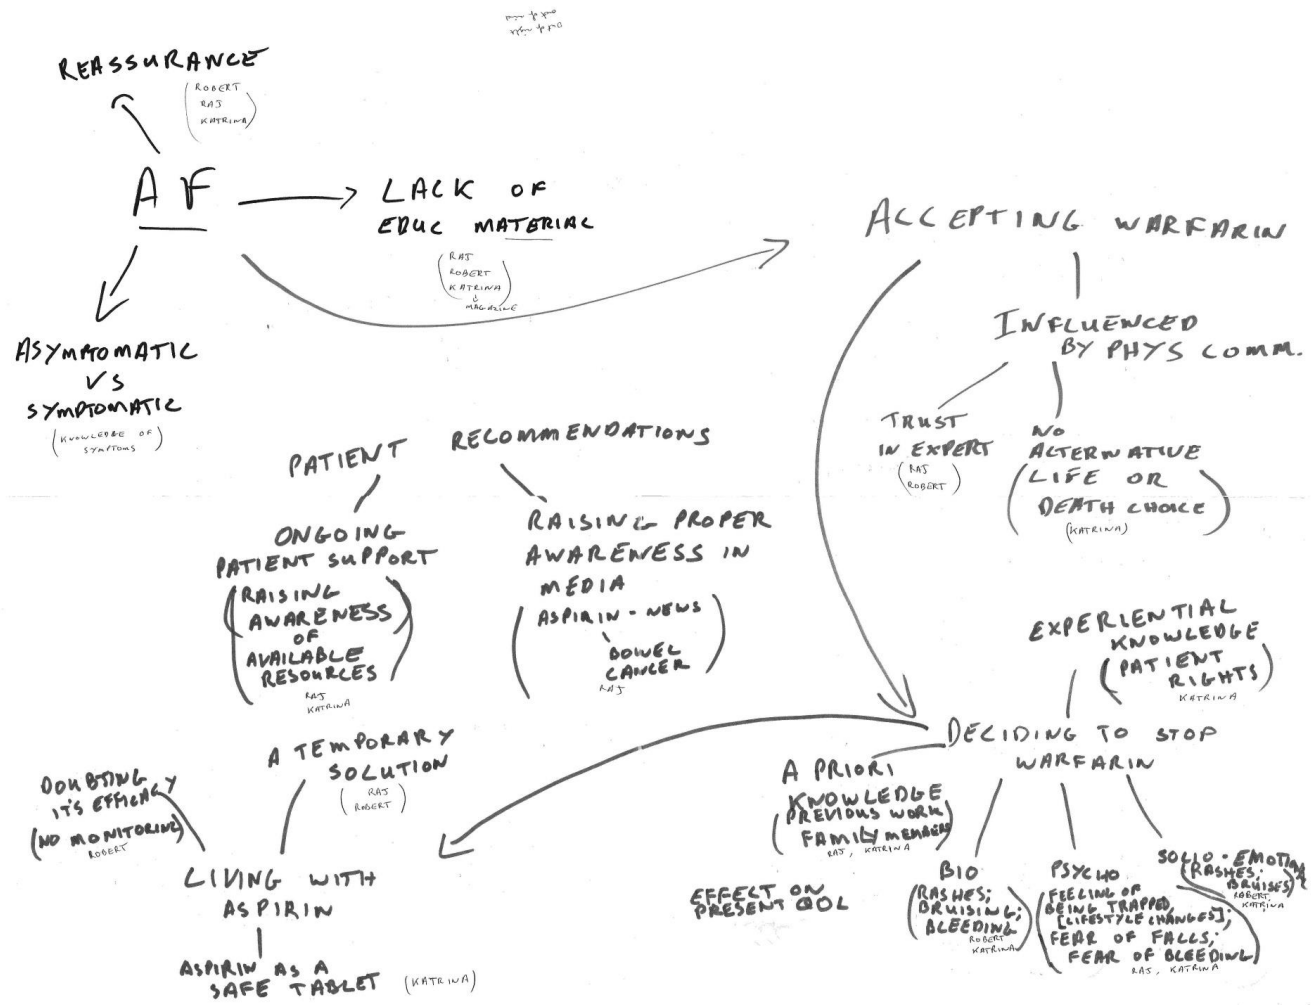 OUT OF SIGHT
OUT OF MIND
REASSURANCE
(ROBERT
RAJ
KATRINA)
AF
LACK OF
EDUC MATERIAL
(RAJ
ROBERT
KATRINA)
&
MAGAZINE
ASYMPTOMATIC
VS
SYMPTOMATIC
(KNOWLEDGE OF
SYMPTOMS)
ACCEPTING WARFARIN
INFLUENCED
BY PHYS COMM.
TRUST
IN EXPERT
(RAJ
ROBERT)
NO
ALTERNATIVE
(LIFE OR
DEATH CHOICE)
(KATRINA)
PATIENT RECOMMENDATIONS
ONGOING
PATIENT SUPPORT
(RAISING
AWARENESS
OF
AVAILABLE
RESOURCES)
RAJ
KATRINA
RAISING PROPER
AWARENESS IN
MEDIA
(ASPIRIN - NEWS
BOWEL
CANCER)
RAJ
EXPERIENTIAL
KNOWLEDGE
(PATIENT
RIGHTS)
KATRINA
DECIDING TO STOP
WARFARIN
A PRIORI
KNOWLEDGE
(PREVIOUS WORK
FAMILY MEMBERS)
RAJ, KATRINA
BIO
(RASHES;
BRUISING;
BLEEDING)
ROBERT
KATRINA
PSYCHO
(FEELING OF
BEING TRAPPED,
[LIFESTYLE CHANGES];
FEAR OF FALLS;
FEAR OF BLEEDING)
RAJ, KATRINA
SOCIO-EMOTION
(RASHES;
BRUISES)
ROBERT,
KATRINA
EFFECT ON
PRESENT QOL
A TEMPORARY
SOLUTION
(RAJ
ROBERT)
DOUBTING
IT'S EFFICACY
(NO MONITORING)
ROBERT
LIVING WITH
ASPIRIN
ASPIRIN AS A
SAFE TABLET (KATRINA)